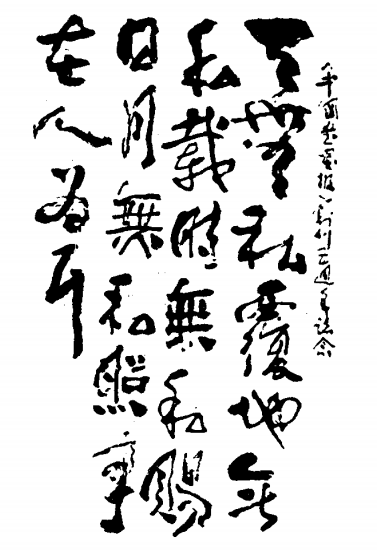 天無私覆地無
私載時無私賜
日月無私照事
在人為耳